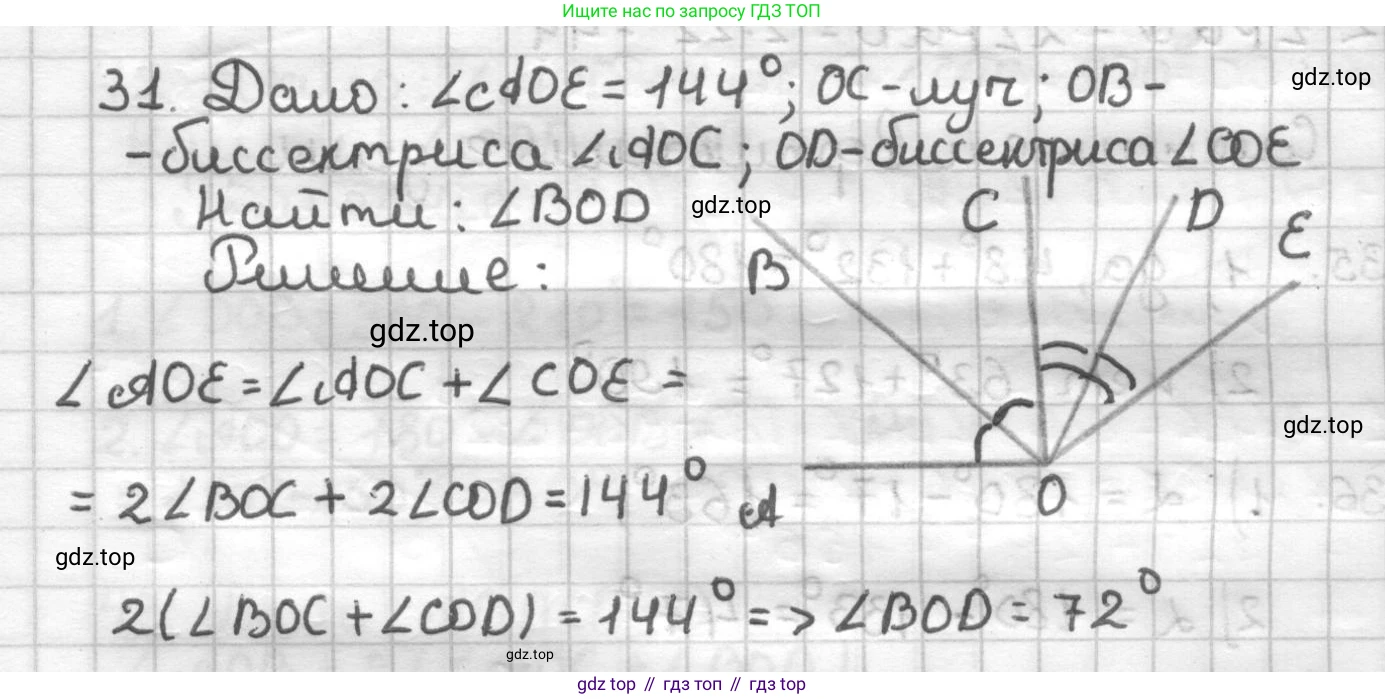 Ищите нас по запросу ГДЗ ТОП
31. Дано: ∠AOE = 144°; OC - луч; OB -
gdz.top
- биссектриса ∠AOC; OD - биссектриса ∠COE
Найти: ∠BOD
gdz.top
C
D
E
Решение:
B
gdz.top
∠AOE = ∠AOC + ∠COE =
gdz.top
= 2∠BOC + 2∠COD = 144°
A
O
gdz.top
2(∠BOC + ∠COD) = 144° => ∠BOD = 72°
gdz.top
gdz top // гдз топ // gdz top